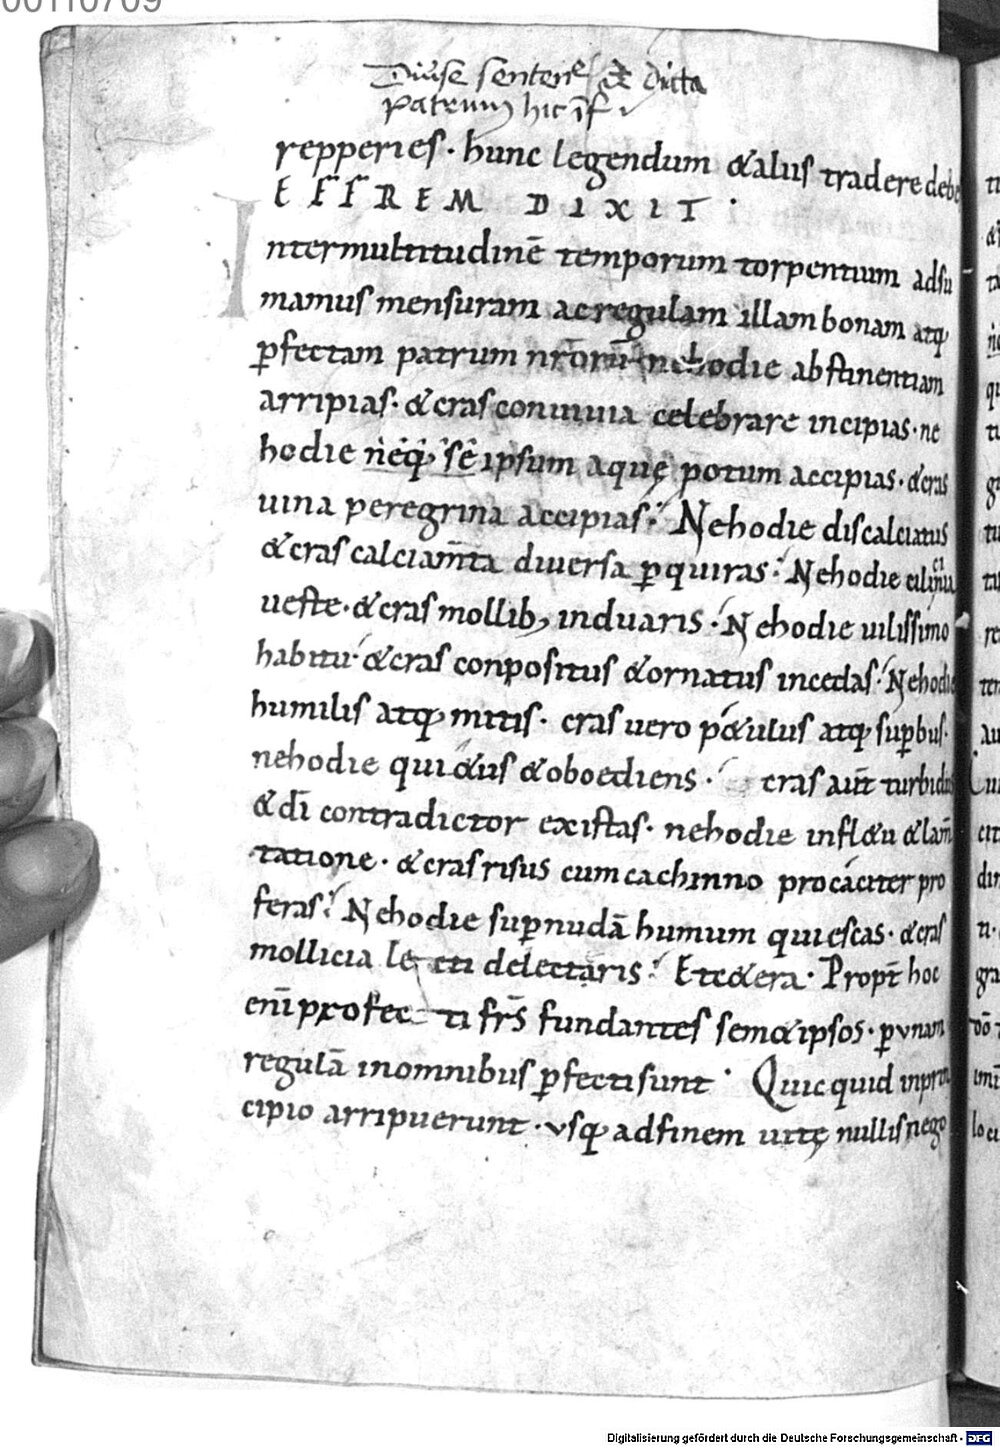 00110709
Diu͛se senten͛e & Dicta
Patrum hic īf
repperies · hunc legendum &aliis tradere debe
EFFREM DIXIT ·
Intermultitudinē temporum torpentium adsu
mamus mensuram acregulam illam bonam atq;
ꝑfectam patrum nr̄orū · nehodie abstinentiam
arripias · & cras conuiuia celebrare incipias · ne
hodie neq; se ipsum aquę potum accipias · & cras
uina peregrina accipias · Nehodie discalciatus
& cras calciam̄ta diuersa ꝑquiras · Nehodie cilicina
ueste · & cras mollib; induaris · Nehodie uilissimo
habitu · & cras conpositus &ornatus incedas · Nehodie
humilis atq; mitis · cras uero p&ulus atq; suꝑbus ·
nehodie qui&us &oboediens · cras aut̄ turbidus
& dī contradictor existas · nehodie infl&u &lam̄
tatione · & cras risus cum cachinno procaciter pro
feras · Nehodie suꝑnudā humum quiescas · & cras
mollicia lecti delectaris · Etc&era · Propt̄ hoc
enī profecti fr̄s fundantes sem&ipsos · ꝑ unam
regulā inomnibus ꝑfecti sunt · Quicquid inprin
cipio arripuerunt · usq; adfinem uitę nullis nego
Digitalisierung gefördert durch die Deutsche Forschungsgemeinschaft - DFG